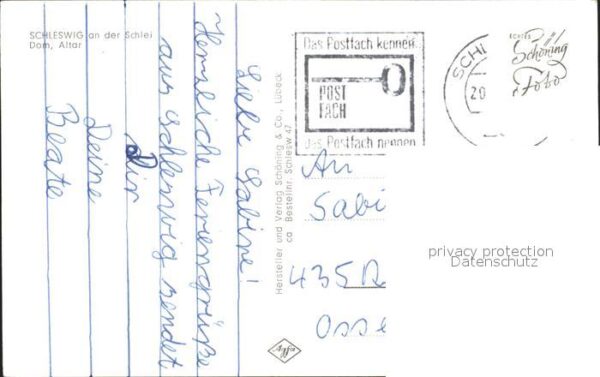 SCHLESWIG an der Schlei
Dom, Altar
Liebe Sabine!
Herzliche Feriengrüße
aus Schleswig sendet
Dir
Deine
Beate
Hersteller und Verlag Schöning & Co., Lübeck
ca Bestellnr. Schlesw 47
Agfa
Das Postfach kennen
POST
FACH
das Postfach nennen
SCHL
20
ECHTES
Schöning
Foto
An
Sabi
435 Re
Osse
privacy protection
Datenschutz